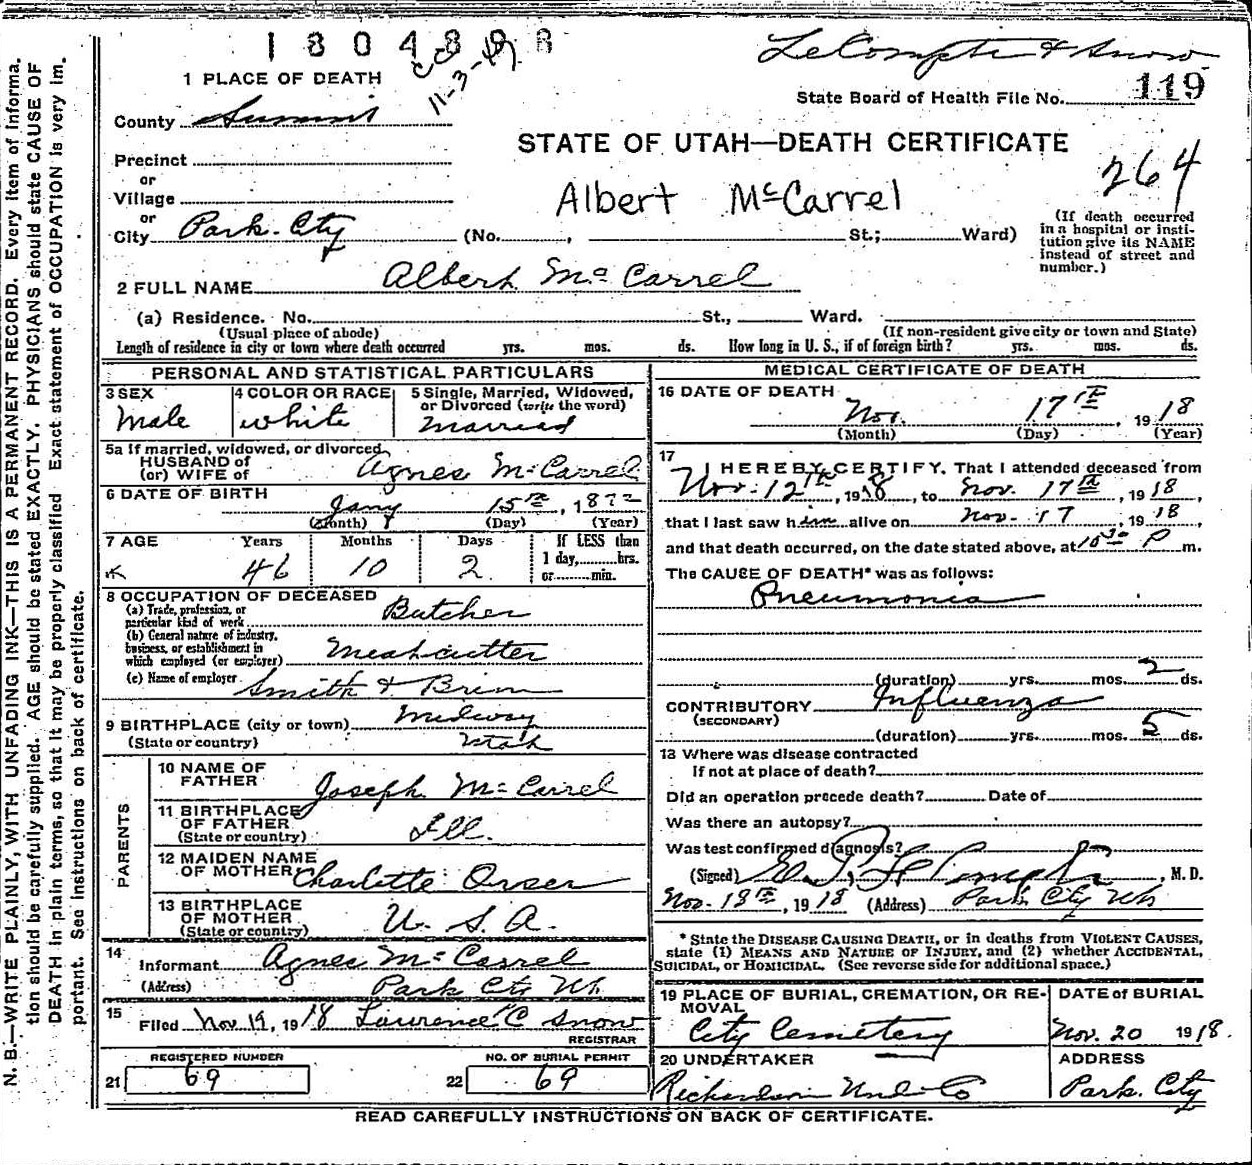 1804898
CC
11-3-49
LeCompte & Snow
1 PLACE OF DEATH
State Board of Health File No. 119
County Summit
STATE OF UTAH—DEATH CERTIFICATE
264
Precinct
or
Village
Albert McCarrel
or
City Park City (No. , St.; Ward)
(If death occurred
in a hospital or insti-
tution give its NAME
instead of street and
number.)
2 FULL NAME Albert McCarrel
(a) Residence. No. St., Ward.
(Usual place of abode) (If non-resident give city or town and State)
Length of residence in city or town where death occurred yrs. mos. ds. How long in U. S., if of foreign birth? yrs. mos. ds.
PERSONAL AND STATISTICAL PARTICULARS
3 SEX
Male
4 COLOR OR RACE
white
5 Single, Married, Widowed,
or Divorced (write the word)
Married
5a If married, widowed, or divorced
HUSBAND of
(or) WIFE of Agnes McCarrel
6 DATE OF BIRTH
Jany 15th, 187
(Month) (Day) (Year)
7 AGE Years Months Days If LESS than
1 day, hrs.
or min.
46 10 2
8 OCCUPATION OF DECEASED
(a) Trade, profession, or
particular kind of work Butcher
(b) General nature of industry,
business, or establishment in
which employed (or employer) Meatcutter
(c) Name of employer Smith & Brim
9 BIRTHPLACE (city or town) Midway
(State or country) Utah
PARENTS
10 NAME OF
FATHER Joseph McCarrel
11 BIRTHPLACE
OF FATHER
(State or country) Ill.
12 MAIDEN NAME
OF MOTHER Charlotte Orser
13 BIRTHPLACE
OF MOTHER
(State or country) U. S. A.
14
Informant Agnes McCarrel
(Address) Park City Ut.
15
Filed Nov 19, 1918 Lawrence C Snow
REGISTRAR
REGISTERED NUMBER
21 69
NO. OF BURIAL PERMIT
22 69
MEDICAL CERTIFICATE OF DEATH
16 DATE OF DEATH
Nov. 17th, 1918
(Month) (Day) (Year)
17
I HEREBY CERTIFY, That I attended deceased from
Nov. 12th, 1918, to Nov. 17th, 1918,
that I last saw him alive on Nov. 17, 1918,
and that death occurred, on the date stated above, at 10 30 P m.
The CAUSE OF DEATH* was as follows:
Pneumonia
(duration) yrs. mos. 2 ds.
CONTRIBUTORY Influenza
(SECONDARY)
(duration) yrs. mos. 5 ds.
18 Where was disease contracted
If not at place of death?
Did an operation precede death? Date of
Was there an autopsy?
Was test confirmed diagnosis?
(Signed) LeCompte, M. D.
Nov. 18th, 1918 (Address) Park City Ut.
* State the DISEASE CAUSING DEATH, or in deaths from VIOLENT CAUSES,
state (1) MEANS AND NATURE OF INJURY, and (2) whether ACCIDENTAL,
SUICIDAL, or HOMICIDAL. (See reverse side for additional space.)
19 PLACE OF BURIAL, CREMATION, OR RE-
MOVAL
City Cemetery
DATE of BURIAL
Nov. 20 1918.
20 UNDERTAKER
Richardson Und. Co
ADDRESS
Park City
READ CAREFULLY INSTRUCTIONS ON BACK OF CERTIFICATE.
N. B.—WRITE PLAINLY, WITH UNFADING INK—THIS IS A PERMANENT RECORD. Every item of informa-
tion should be carefully supplied. AGE should be stated EXACTLY. PHYSICIANS should state CAUSE OF
DEATH in plain terms, so that it may be properly classified. Exact statement of OCCUPATION is very im-
portant. See instructions on back of certificate.